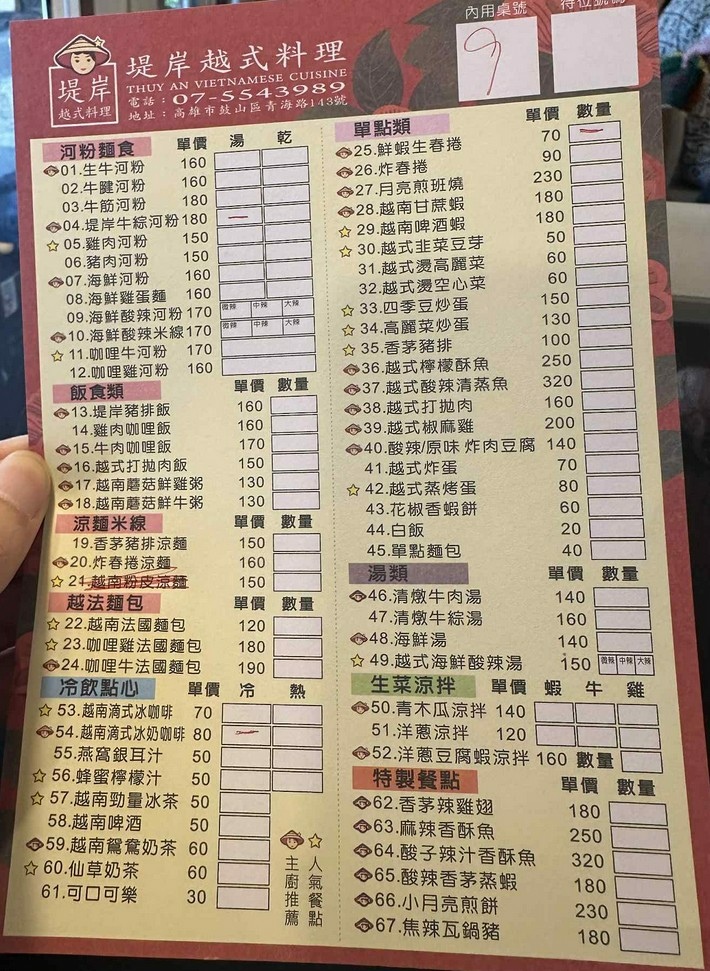 內用桌號
待位號碼
9
堤岸
越式料理
堤岸越式料理
THUY AN VIETNAMESE CUISINE
電話：07-5543989
地址：高雄市鼓山區青海路143號
河粉麵食 單價 湯 乾
01.生牛河粉 160
02.牛腱河粉 160
03.牛筋河粉 180
04.堤岸牛綜河粉 180
05.雞肉河粉 150
06.豬肉河粉 150
07.海鮮河粉 160
08.海鮮雞蛋麵 160
09.海鮮酸辣河粉 170 微辣 中辣 大辣
10.海鮮酸辣米線 170 微辣 中辣 大辣
11.咖哩牛河粉 170
12.咖哩雞河粉 160
飯食類 單價 數量
13.堤岸豬排飯 160
14.雞肉咖哩飯 160
15.牛肉咖哩飯 170
16.越式打拋肉飯 150
17.越南蘑菇鮮雞粥 130
18.越南蘑菇鮮牛粥 130
涼麵米線 單價 數量
19.香茅豬排涼麵 150
20.炸春捲涼麵 160
21.越南粉皮涼麵 150
越法麵包 單價 數量
22.越南法國麵包 120
23.咖哩雞法國麵包 180
24.咖哩牛法國麵包 190
冷飲點心 單價 冷 熱
53.越南滴式冰咖啡 70
54.越南滴式冰奶咖啡 80
55.燕窩銀耳汁 50
56.蜂蜜檸檬汁 50
57.越南勁量冰茶 50
58.越南啤酒 50
59.越南鴛鴦奶茶 60
60.仙草奶茶 60
61.可口可樂 30
主廚推薦
人氣餐點
單點類 單價 數量
25.鮮蝦生春捲 70
26.炸春捲 90
27.月亮煎班燒 230
28.越南甘蔗蝦 180
29.越南啤酒蝦 180
30.越式韭菜豆芽 50
31.越式燙高麗菜 60
32.越式燙空心菜 60
33.四季豆炒蛋 150
34.高麗菜炒蛋 130
35.香茅豬排 100
36.越式檸檬酥魚 250
37.越式酸辣清蒸魚 320
38.越式打拋肉 160
39.越式椒麻雞 200
40.酸辣/原味 炸肉豆腐 140
41.越式炸蛋 70
42.越式蒸烤蛋 80
43.花椒香蝦餅 60
44.白飯 20
45.單點麵包 40
湯類 單價 數量
46.清燉牛肉湯 140
47.清燉牛綜湯 160
48.海鮮湯 140
49.越式海鮮酸辣湯 150 微辣 中辣 大辣
生菜涼拌 單價 蝦 牛 雞
50.青木瓜涼拌 140
51.洋蔥涼拌 120
52.洋蔥豆腐蝦涼拌 160 數量
特製餐點 單價 數量
62.香茅辣雞翅 180
63.麻辣香酥魚 250
64.酸子辣汁香酥魚 320
65.酸辣香茅蒸蝦 180
66.小月亮煎餅 230
67.焦辣瓦鍋豬 180